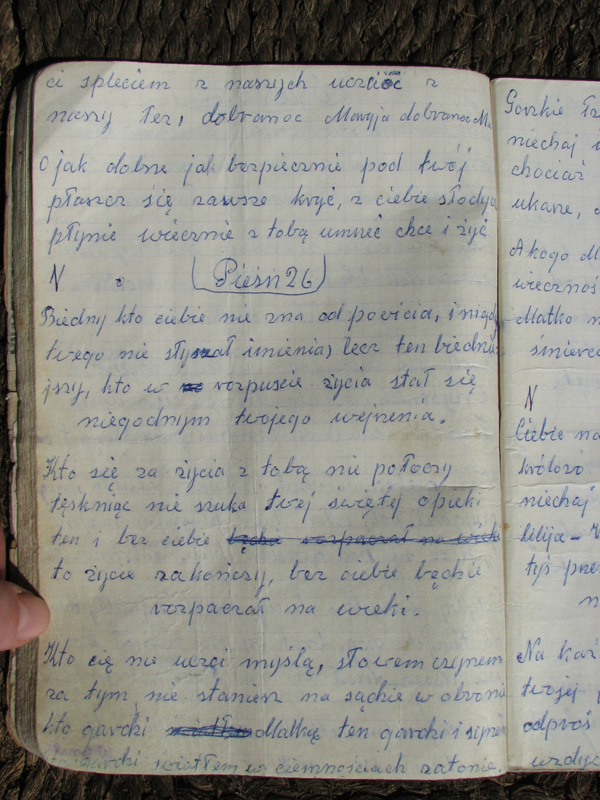 ci spleciem z naszych uczuć z
naszy łez, dobranoc Maryja dobranoc Ma
O jak dobrze jak bezpiecznie pod twój
płaszcz się zawsze kryć, z ciebie słody
płynie wiecznie z tobą umrieć chce i żyć
N
(Pieśń 26)
Biedny kto ciebie nie zna od powicia, i nigdy
twego nie słyszał imienia, lecz ten biedni
jszy, kto w rozpuscie życia stał się
niegodnym twojego wejrzenia.
Kto się za życia z tobą nie połoczy
tęskniąc nie szuka twej świętej opieki
ten i bez ciebie będzie rozpaczał na wieki
to życie zakończy, bez ciebie będzie
rozpaczał na wieki.
Kto cię nie uczci myślą, słowem czynem
za tym nie staniesz na sądzie w obroni
kto gardzi Matką ten gardzi i synem
gardzi światłem w ciemnościach zatonie.
Gorzkie
niechaj
chociaż
ukarze,
A kogo M
wieczność
Matko
śmierć
N
Ciebie na
królowo
niechaj
lilija –
tyś
Na każ
twojej
odproś